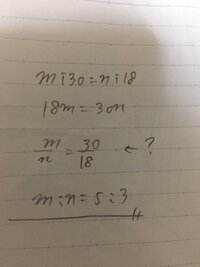 m:30=n:18
18m=30n
m/n=30/18 ← ?
m:n=5:3